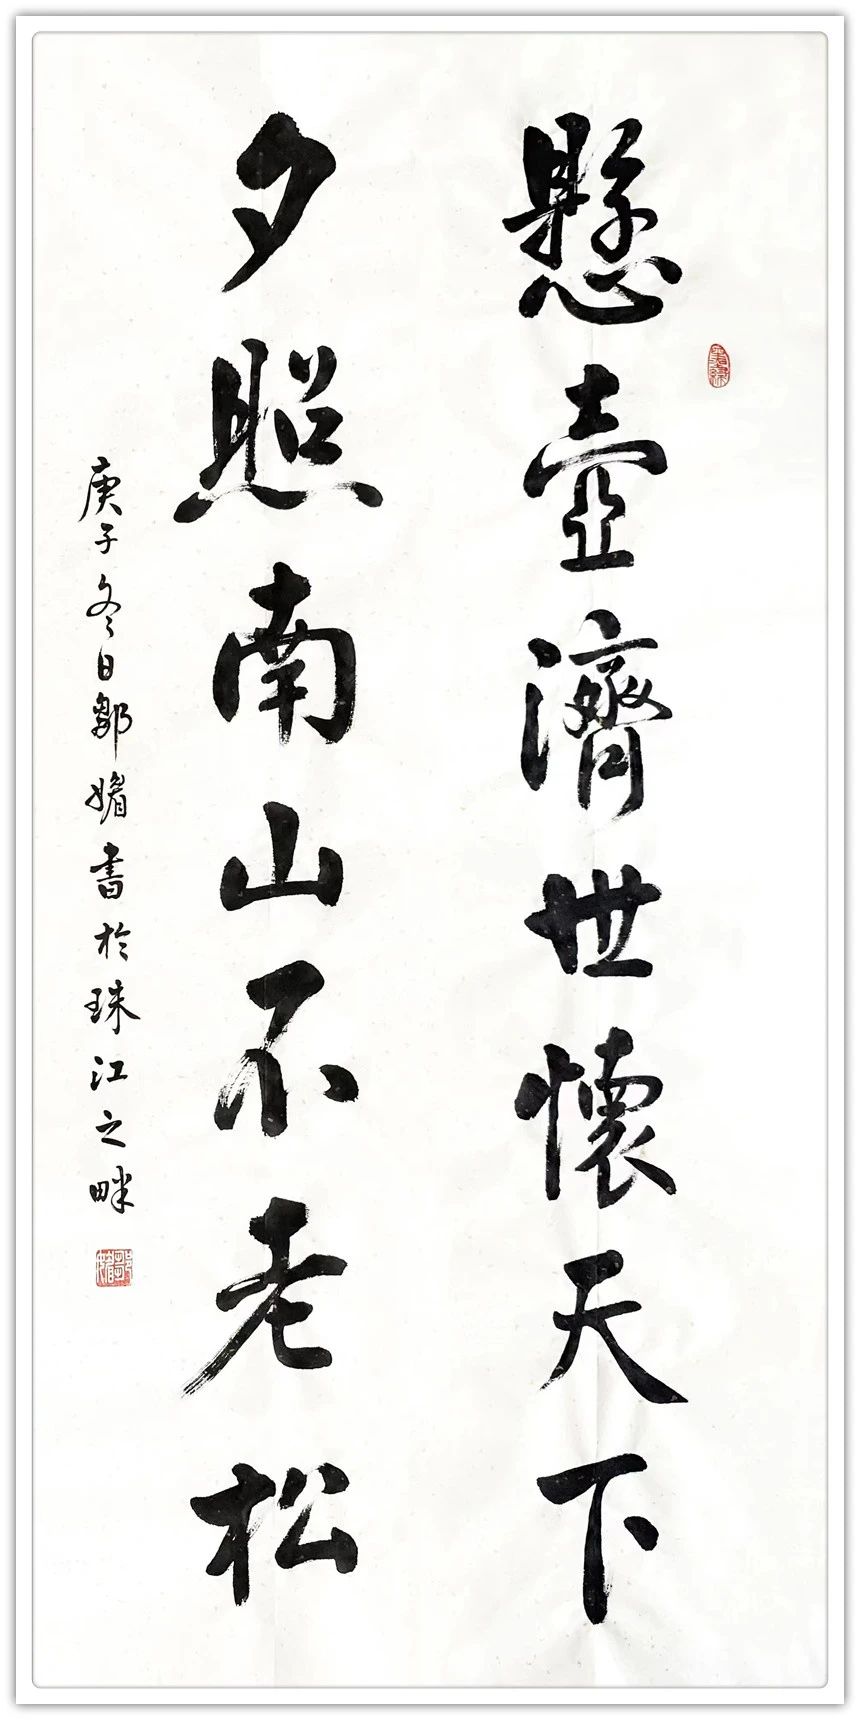 懸壺濟世懷天下
夕照南山不老松
庚子冬日鄒媚書於珠江之畔
鄒媚